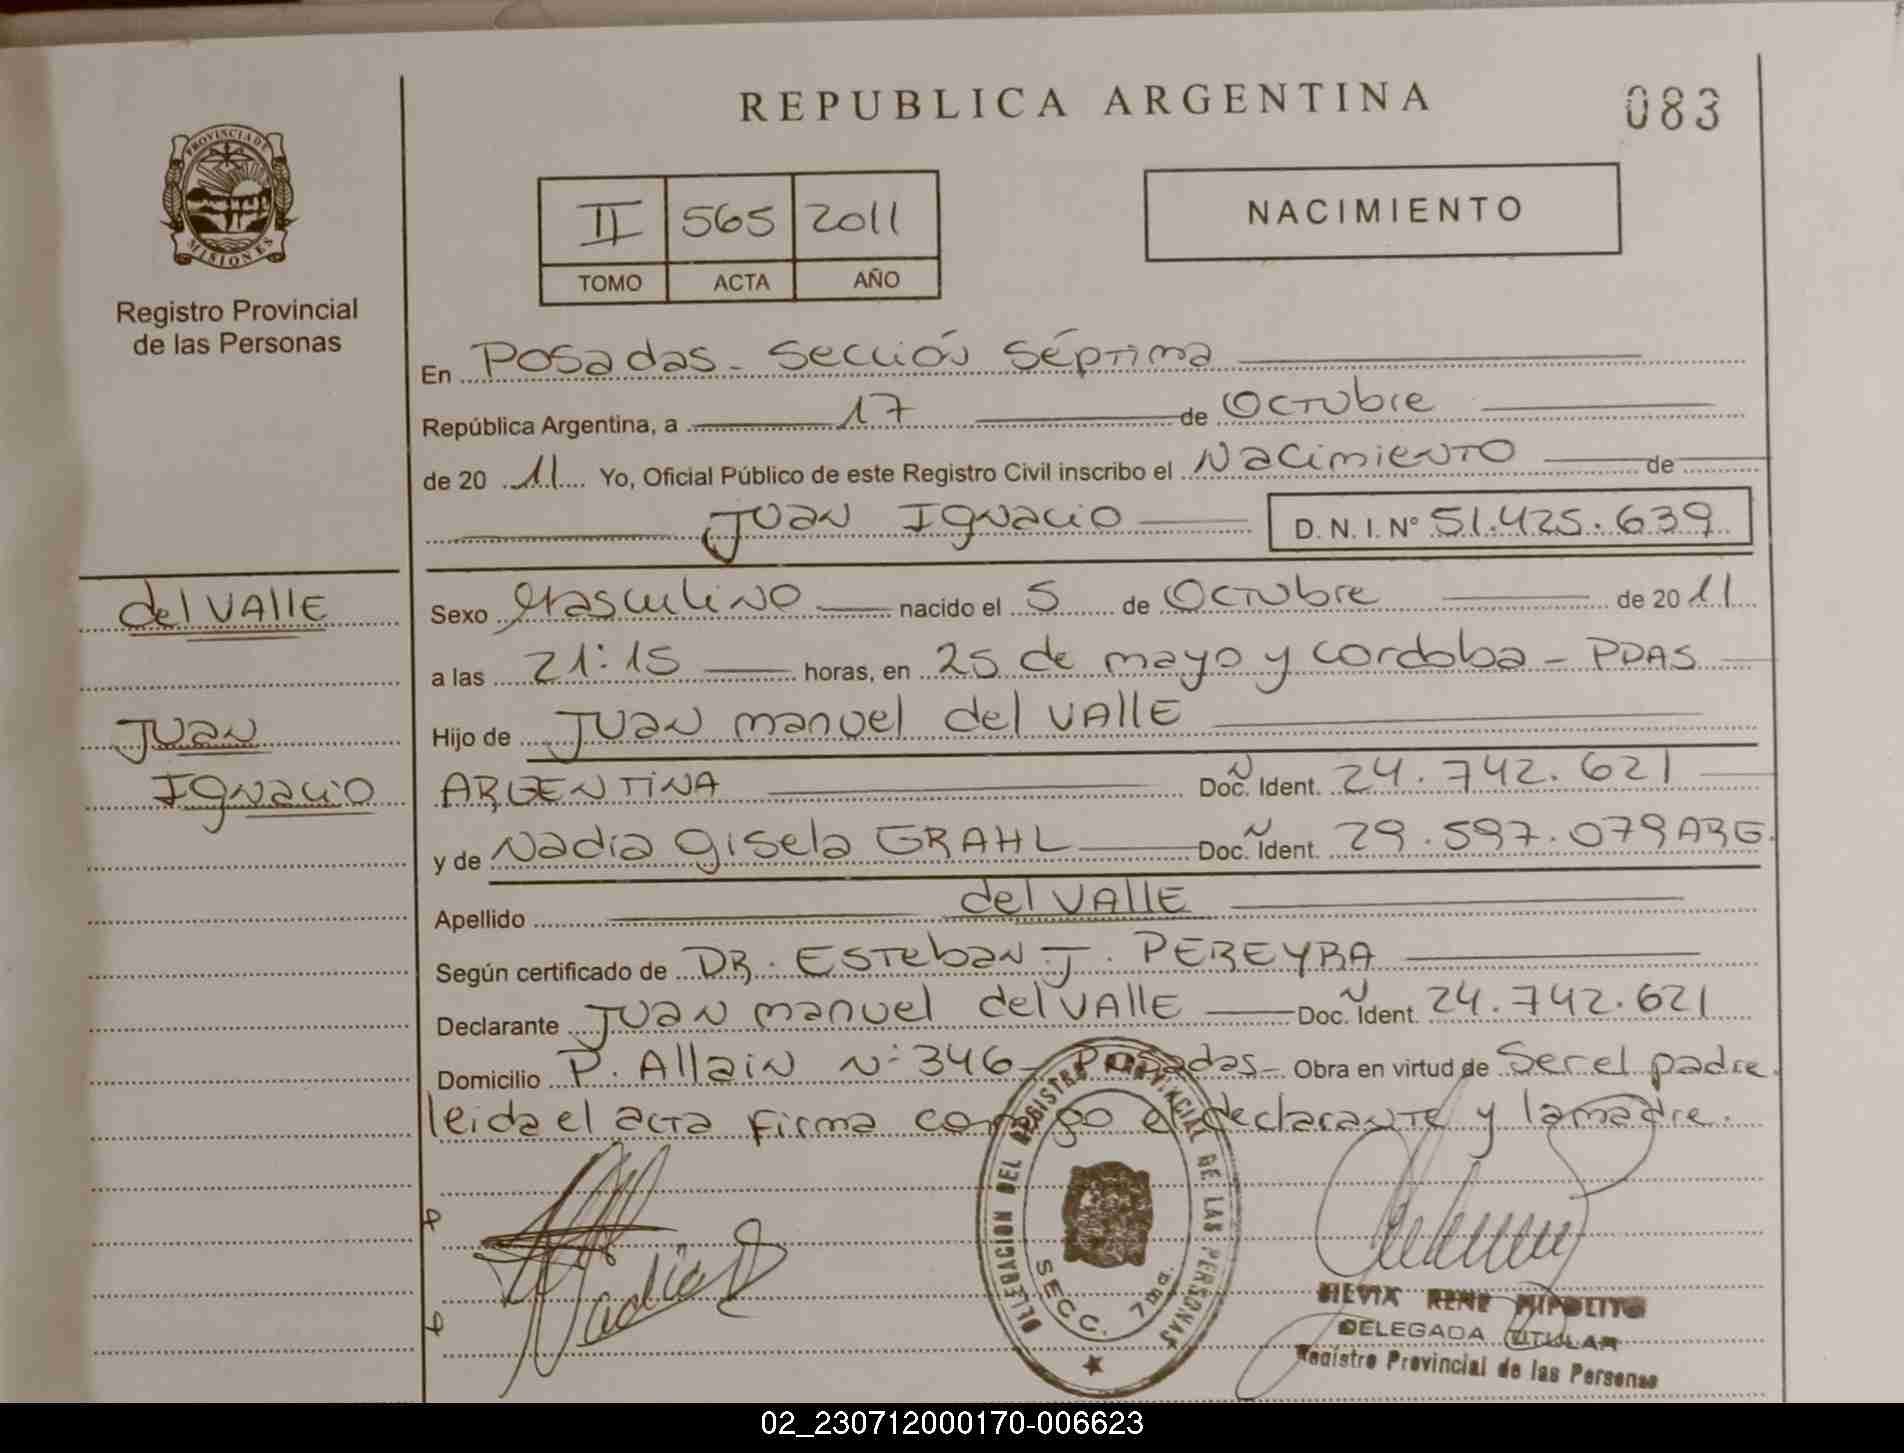 REPUBLICA ARGENTINA
083
PROVINCIA DE
MISIONES
Registro Provincial
de las Personas
II 565 2011
TOMO ACTA AÑO
NACIMIENTO
En Posadas - Sección Séptima
República Argentina, a 17 de Octubre
de 20 11 Yo, Oficial Público de este Registro Civil inscribo el Nacimiento de
Juan Ignacio D. N. I. Nº 51.425.639
del VAllE
Sexo Masculino nacido el 5 de Octubre de 20 11
a las 21:15 horas, en 25 de mayo y cordoba - PDAS
Juan
Hijo de Juan manuel del VAllE
Ignacio
ARGENTINA Doc. Ident. 24.742.621
y de Nadia Gisela GRAHL Doc. Ident. 29.597.079 ARG.
Apellido del VAllE
Según certificado de DR. ESTEBAN J. PEREYRA
Declarante Juan manuel del VAllE Doc. Ident. 24.742.621
Domicilio P. Allain Nº 346 - Posadas - Obra en virtud de Ser el padre.
leida el acta firma conmigo el declarante y la madre.
DELEGACION DEL REGISTRO PROVINCIAL DE LAS PERSONAS
SECC. 7ma.
Nadia
RENE HIPOLITO
DELEGADA TITULAR
Registro Provincial de las Personas
02_230712000170-006623